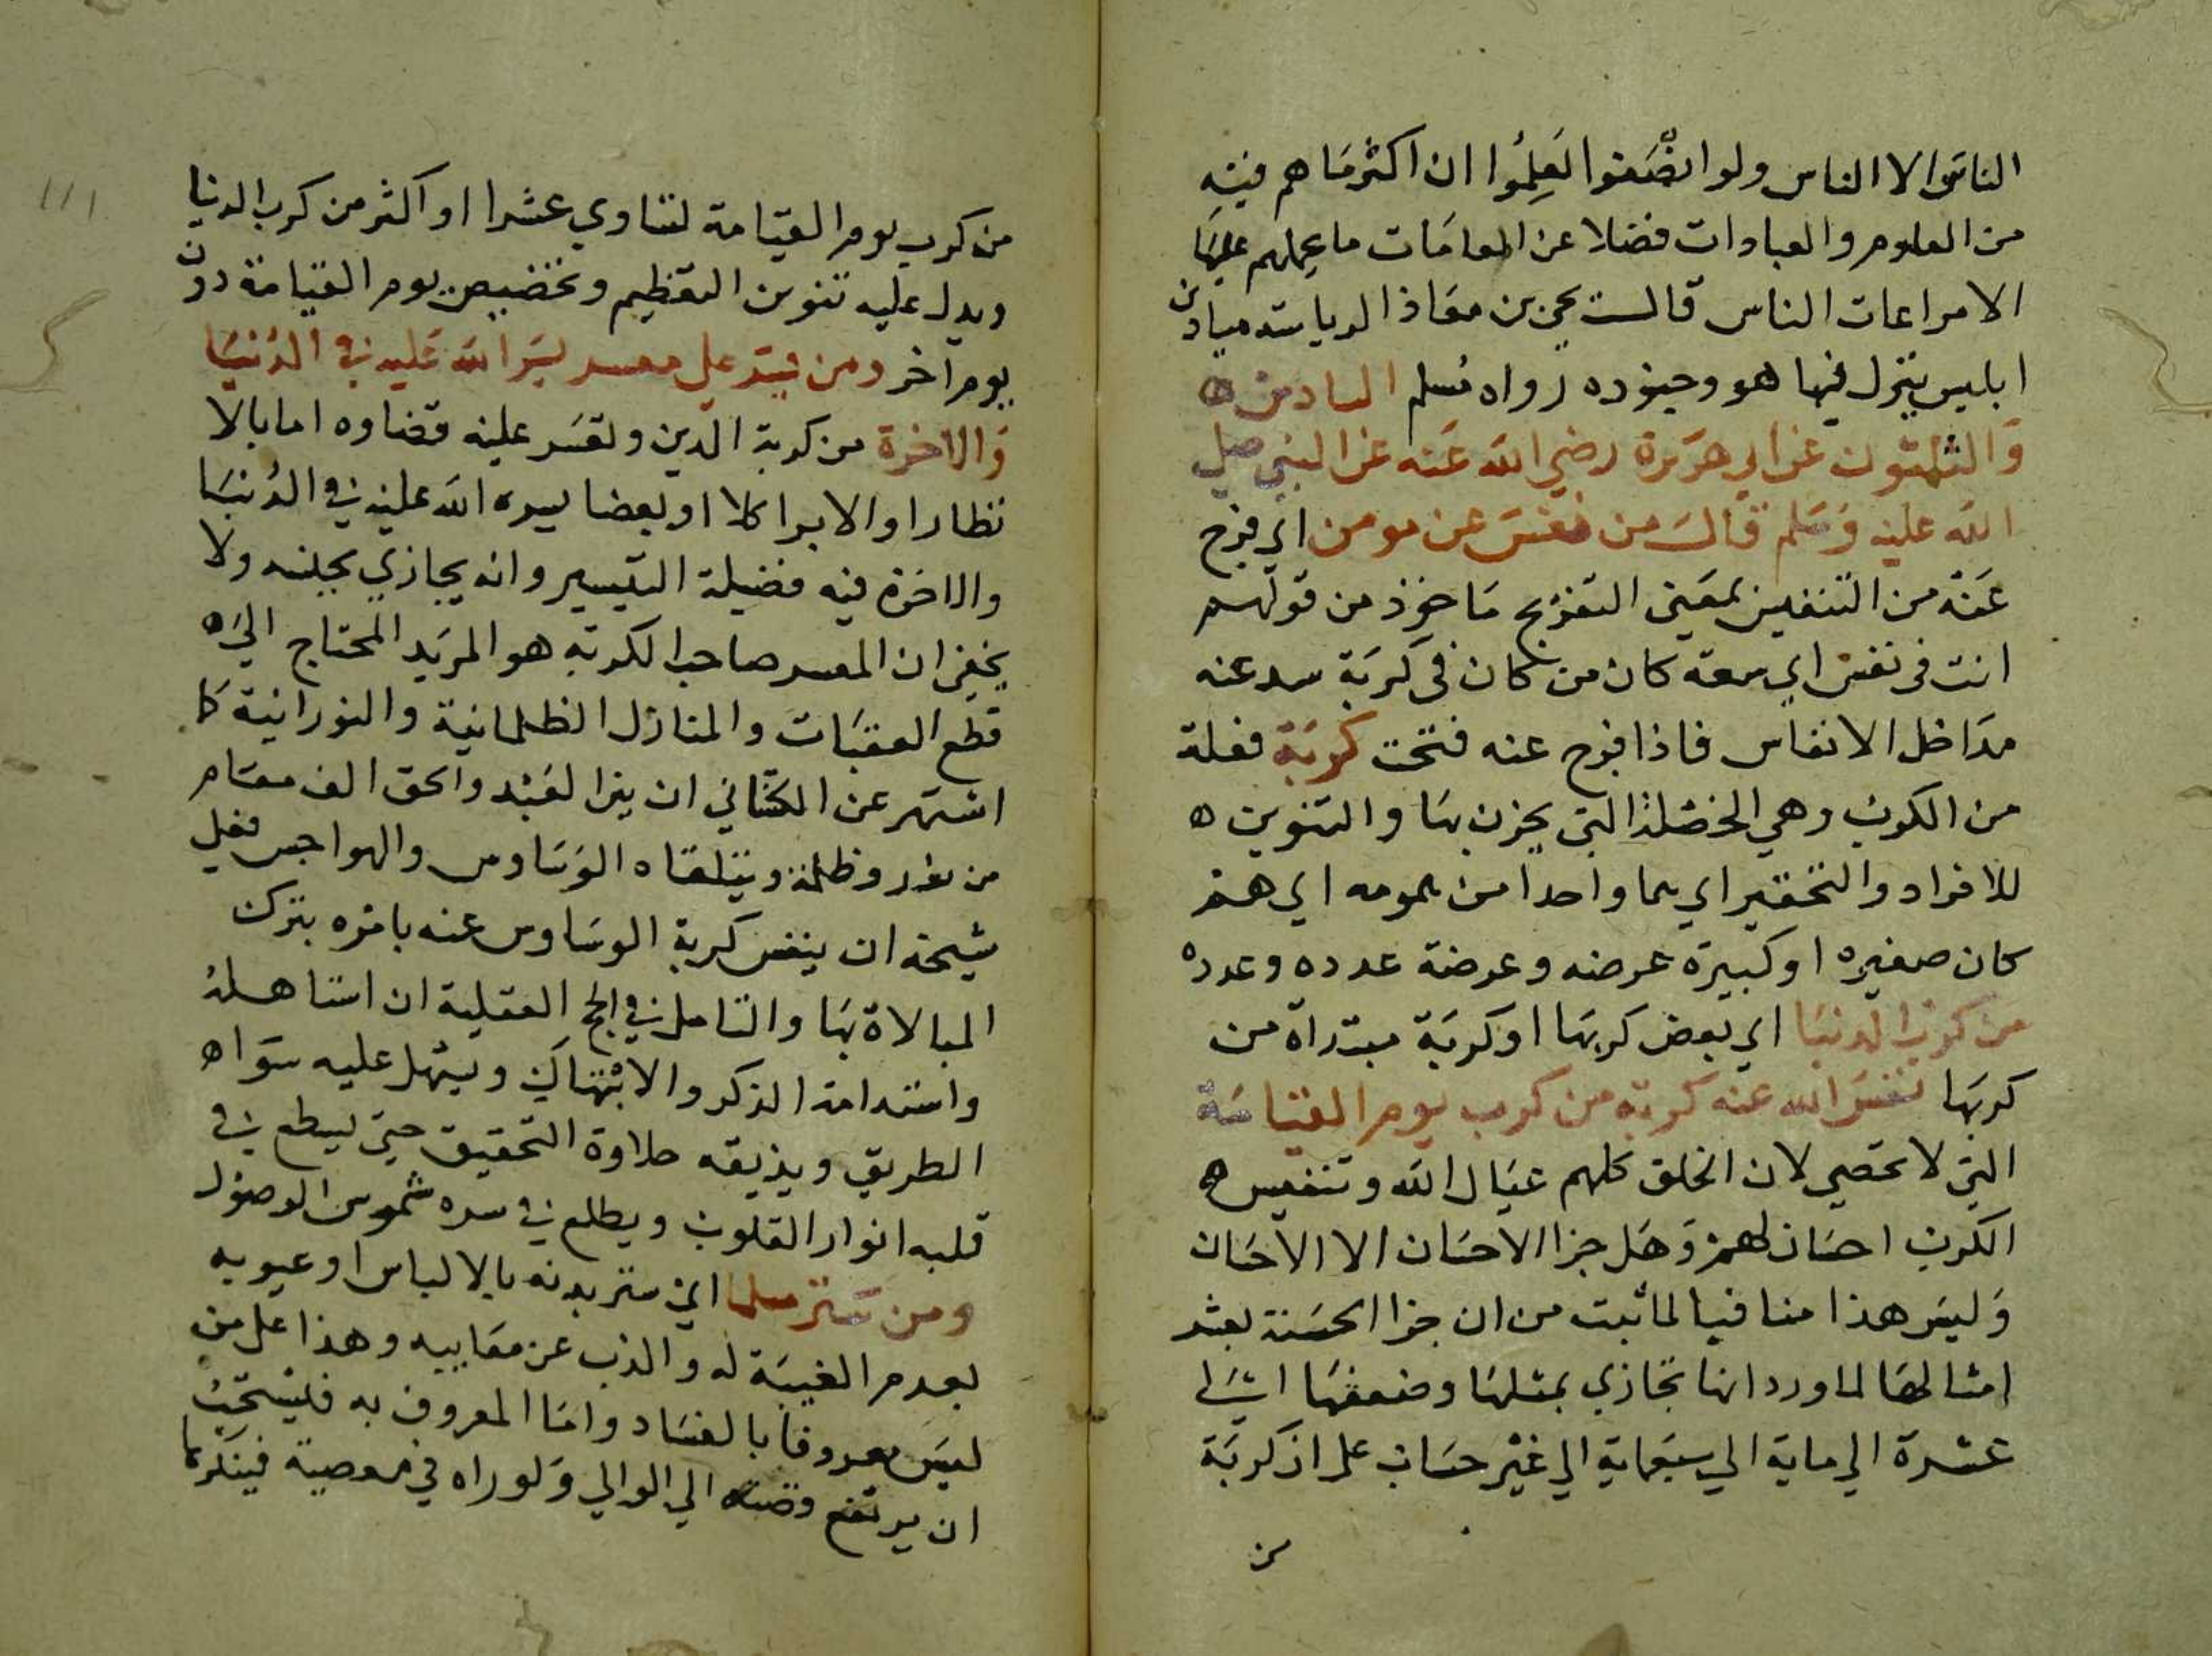 الناس الا الناس ولو انصفوا لعلموا ان اكثر ما هم فيه
من العلوم والعبادات فضلا عن العامات ما يحملهم عليها
الا مراعات الناس قال يحيى بن معاذ الرياسة ميادين
ابليس ينزل فيها هو وجنوده رواه مسلم السادس
والثلثون عن ابي هريرة رضي الله عنه عن النبي صلي
الله عليه وسلم قال من نفس عن مومن اي فرج
عنه من التنفيس بمعني التفريج ماخوذ من قولهم
انت في نفس اي سعة كان من كان في كربة سد عنه
مداخل الانفاس فاذا فرج عنه فتحت كربة فعلة
من الكرب وهي الخصلة التي يحزن بها والتنوين
للافراد والتحقير اي هما واحدا من همومه اي هم
كان صغيره او كبيره عرضه وعرضة عدده وعدده
من كرب الدنيا اي بعض كربها او كربة مبتداة من
كربها نفس الله عنه كربة من كرب يوم القيامة
التي لا تحصي لان الخلق كلهم عيال الله وتنفيس
الكرب احسان لهم وهل جزا الاحسان الا الاحسان
وليس هذا منافيا لما ثبت من ان جزا الحسنة بعشر
امثالها لما ورد انها تجازي بمثلها وضعفها الي
عشرة الي ماية الي سبعماية الي غير حساب علي ان كربة
من
١١١
من كرب يوم القيامة لتساوي عشرا او اكثر من كرب الدنيا
ويدل عليه تنوين التعظيم وتخصيص يوم القيامة دون
يوم اخر ومن يسر علي معسر يسر الله عليه في الدنيا
والاخرة من كربة الدين وتعسر عليه قضاوه اما بالا
نظار او الابرا كلا او بعضا يسره الله عليه في الدنيا
والاخرة فيه فضيلة التيسير وانه يجازي بجنسه ولا
يخفي ان المعسر صاحب الكربة هو المريد المحتاج الي
قطع العقبات والمنازل الظلمانية والنورانية كا
اشتهر عن الكتاني ان بين العبد والحق الف مقام
من نور وظلمة ويتلقاه الوساوس والهواجس فعلي
شيخه ان ينفس كربة الوساوس عنه بامره بترك
المبالاة بها والتامل في الحج العقلية ان استاهله
واستدامة الذكر والابتهاك ويسهل عليه سواه
الطريق ويذيقه حلاوة التحقيق حتي يسطع في
قلبه انوار القلوب ويطلع في سره شموس الوصول
ومن ستر مسلما اي ستر بدنه بالالباس او عيوبه
بعدم الغيبة له والذب عن معاييبه وهذا علي من
ليس معروفا بالفساد واما المعروف به فيستحب
ان يرتفع قصته الي الوالي ولو راه في معصية فينكرها